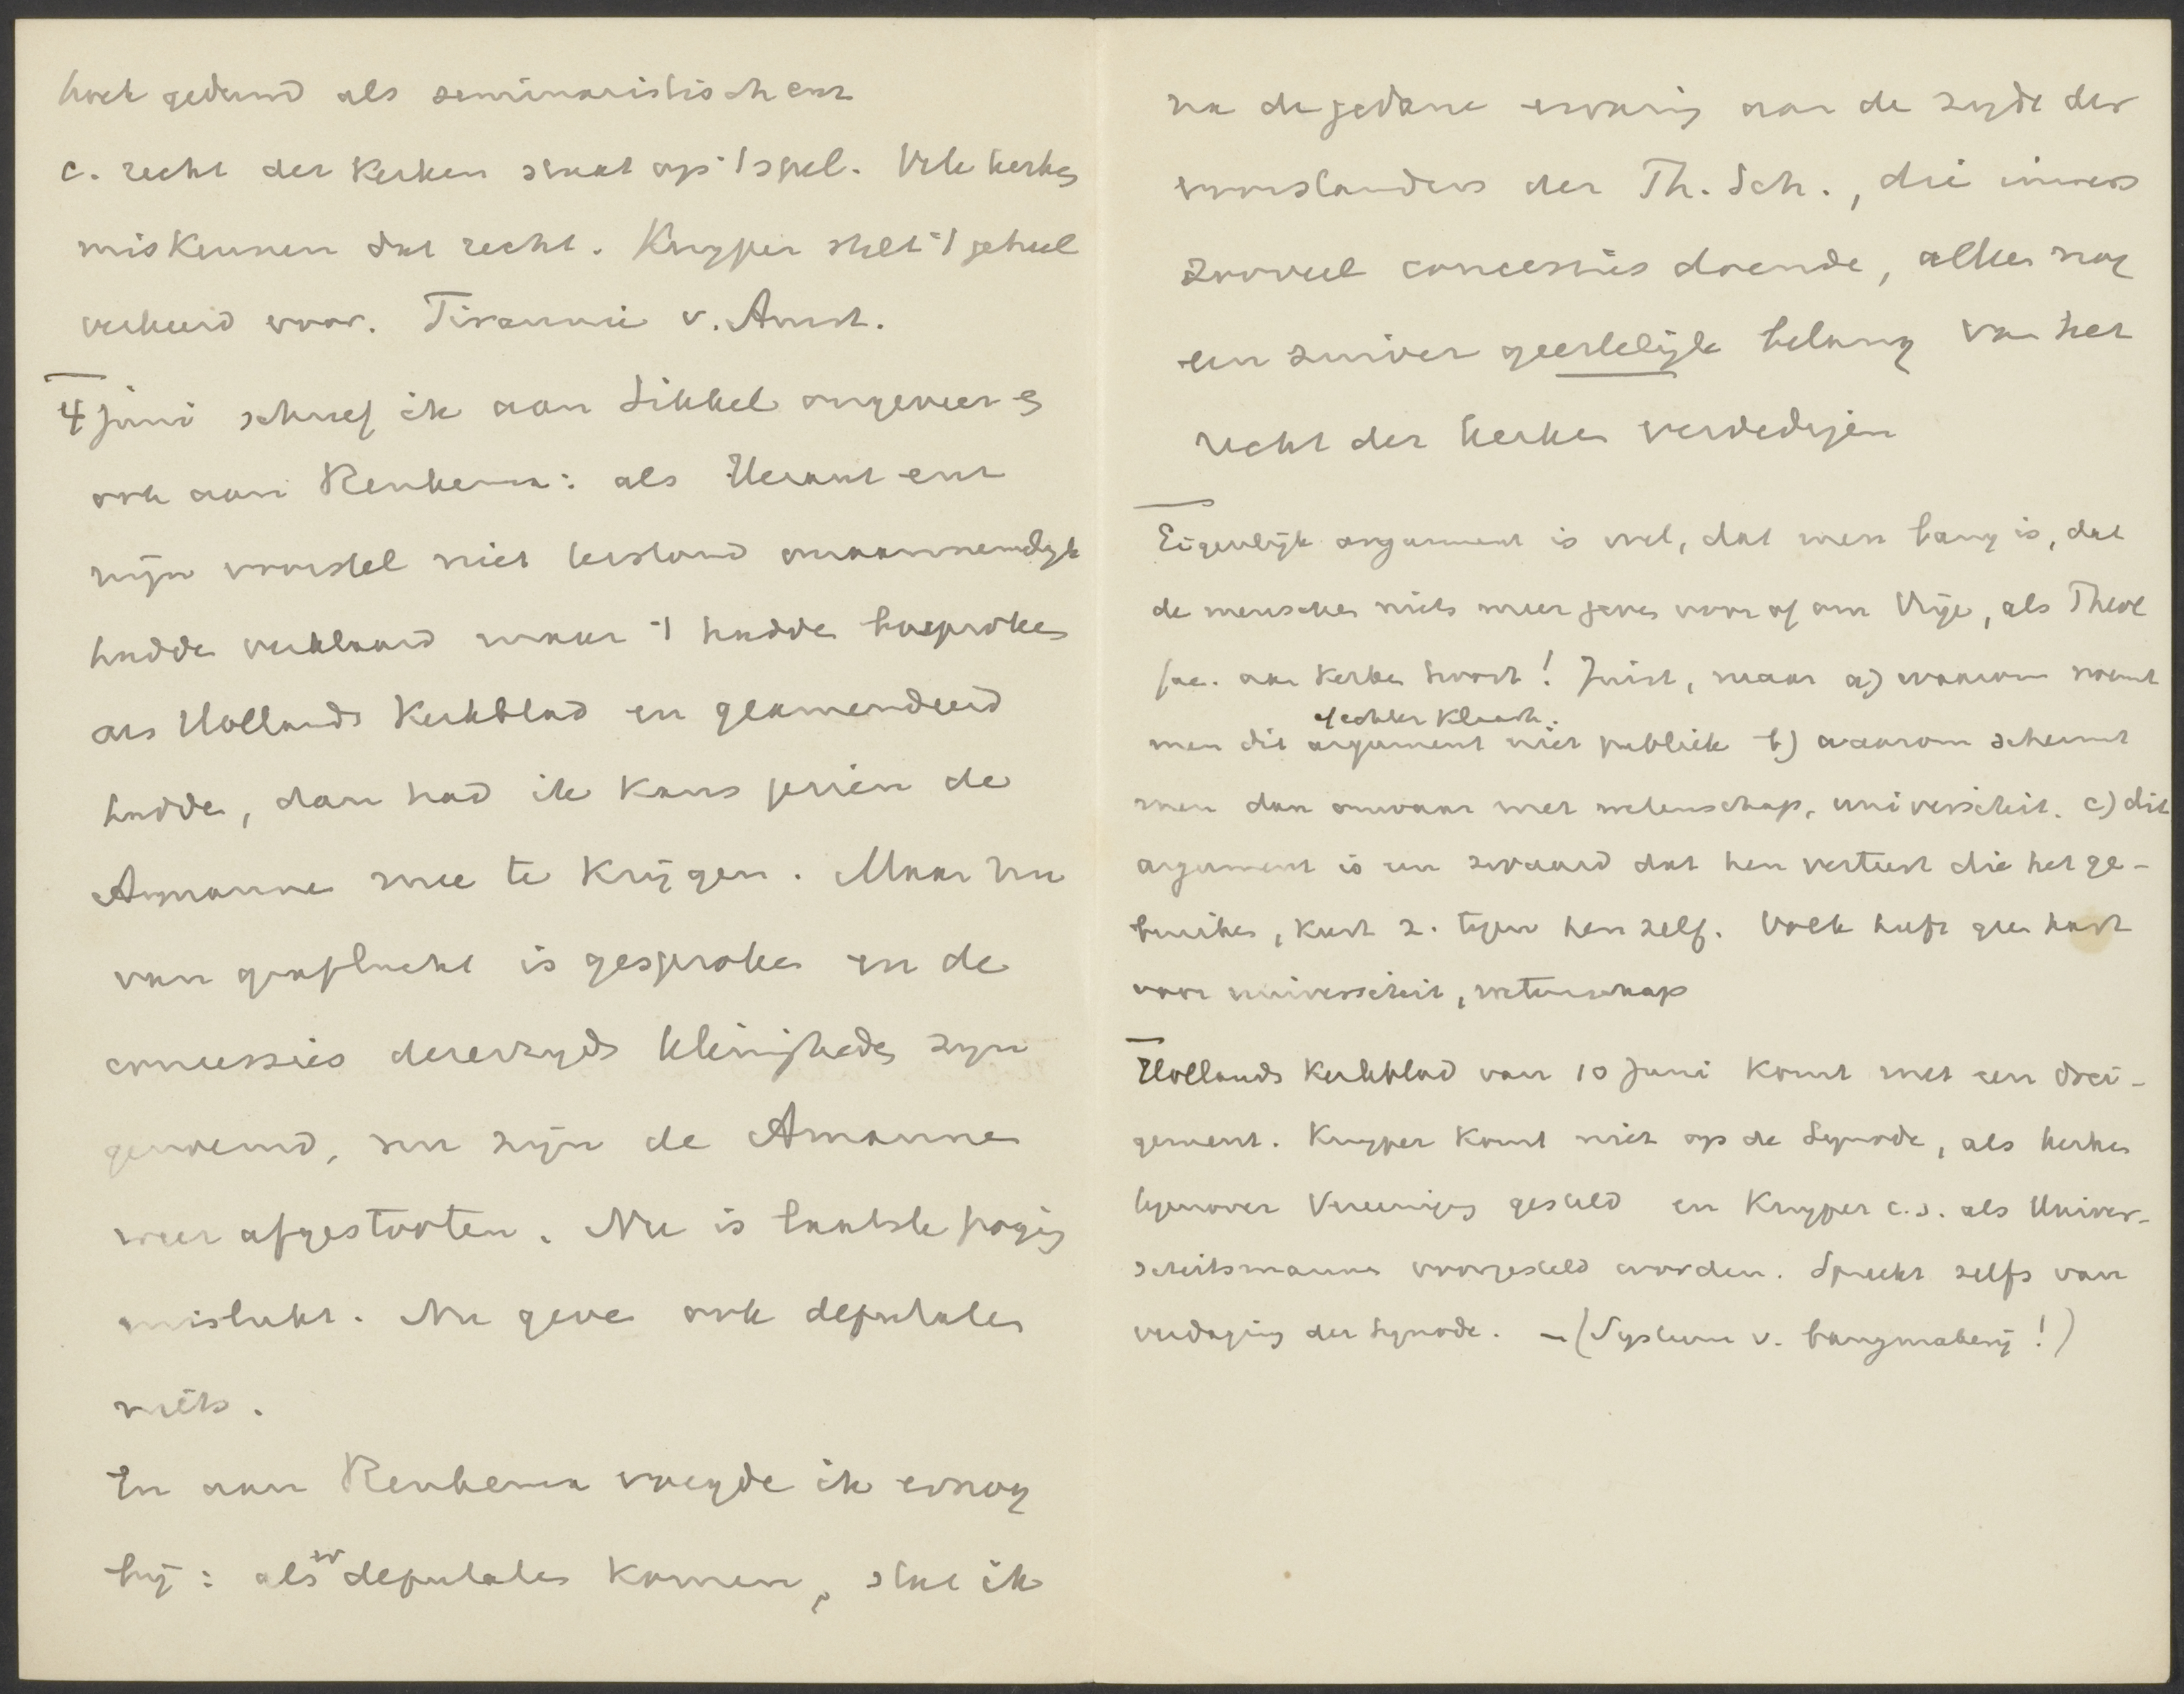 boek gedeund als seminaristisch enz
c. recht der Kerken staat op 't spel. Vele kerken
miskennen dat recht. Kuyper stelt 't geheel
verkeerd voor. Tirannie v. Amst.
4 juni schreef ik aan Sikkel ongeveer en
ook aan Renkema: als Heraut enz
mijn voorstel niet terstond onaannemelijk
hadde verklaard maar 't hadde besproken
als Hollands Kerkblad en geamendeerd
hadde, dan had ik kans gezien de
Amannen mee te krijgen. Maar nu
van graflucht is gesproken en de
concessies dererzyds kleinigheden zyn
genoemd, nu zijn de Amannen
weer afgestooten. Nu is laatste poging
mislukt. Nu geven ook deputaten
niets.
En aan Renkema voegde ik er nog
bij: als er deputaten komen, sta ik
na de gedane ervaring aan de zyde der
voorstanders der Th. Sch., die immers
zooveel concessies doende, alleen nog
een zuiver geestelijk belang van het
recht der kerken verdedigen
Eigenlijk argument is wel, dat men bang is, dat
de menschen niets meer geven voor of aan Vrije, als Theol
fac. aan Kerken hoort! Juist, maar a) waarom noemt
men dit argument niet publiek b) waarom schermt
men dan onwaar met wetenschap, universiteit. c) dit
argument is een zwaard dat hen verteert die het ge-
bruiken, keert z. tegen hen zelf. Volk heeft geen hart
voor universiteit, wetenschap
Hollands Kerkblad van 10 Juni komt met een drei-
gement. Kuyper komt niet op de Synode, als kerken
tegenover Vereeniging gesteld en Kuyper c.s. als Univer-
siteitsmannen voorgesteld worden. Spreekt zelfs van
verdaging der Synode. – (Systeem v. bangmakerij!)